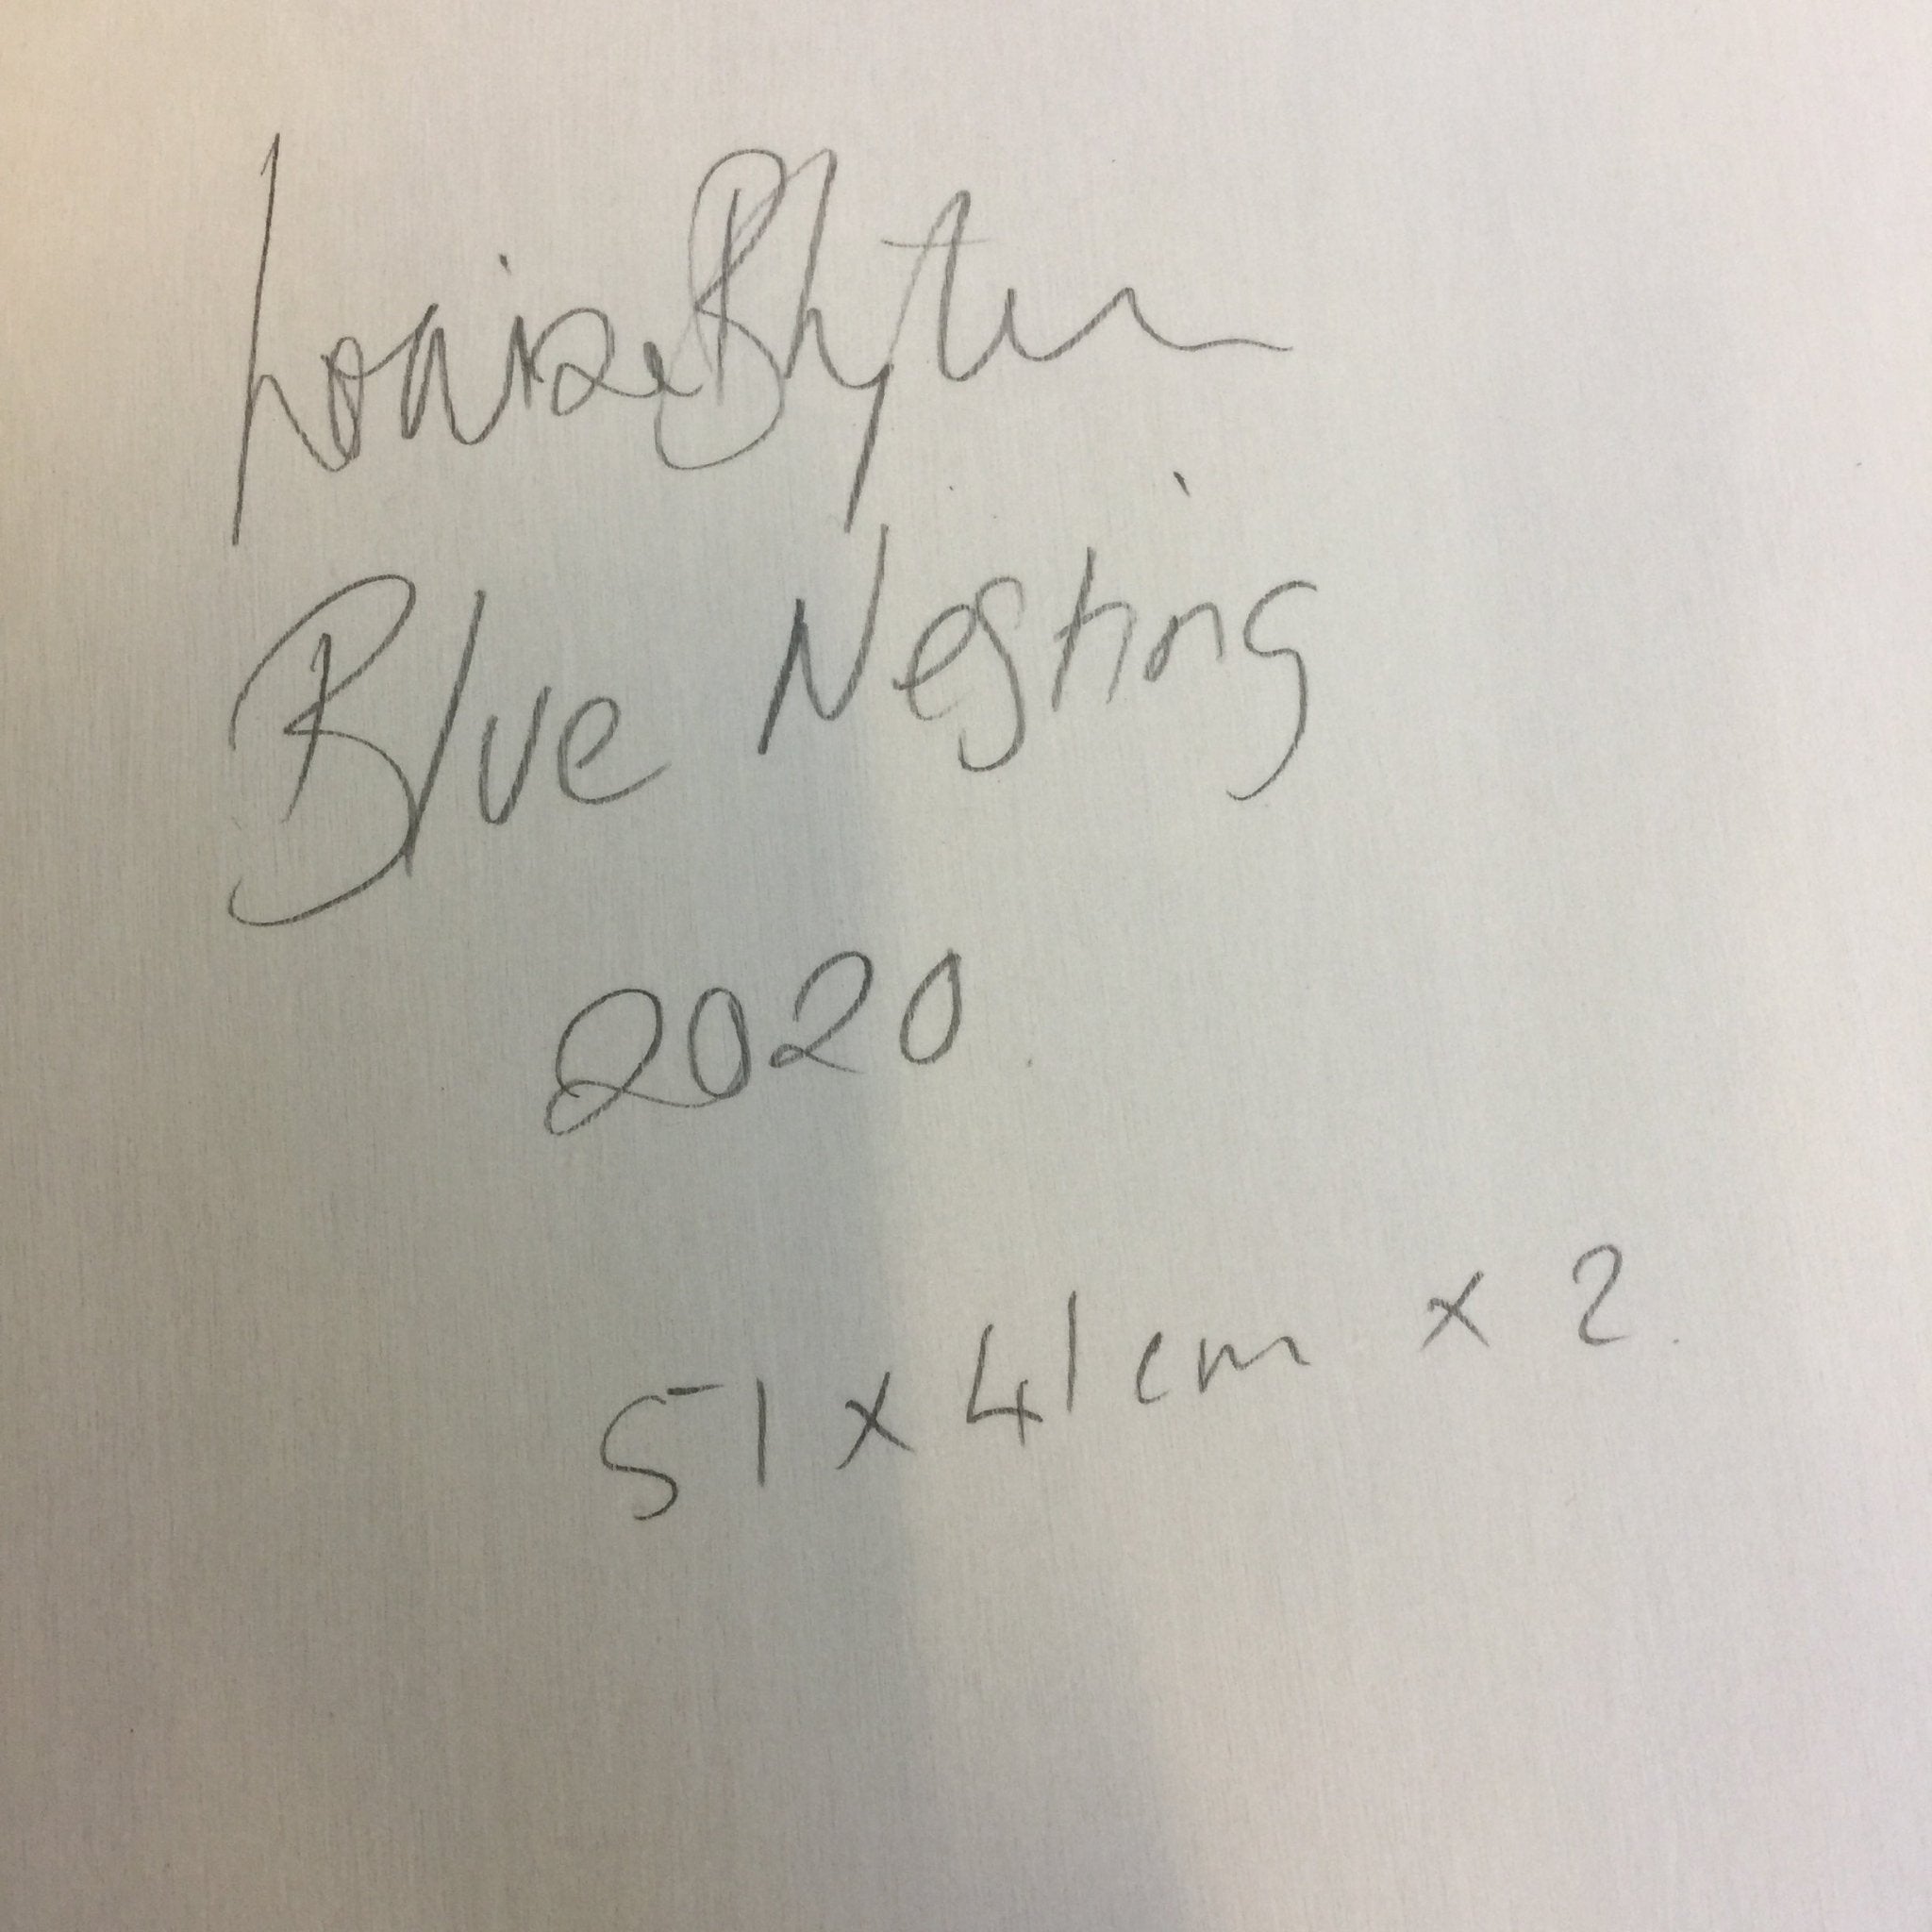 Louise Blyton
Blue Nesting
2020
51 x 41 cm x 2